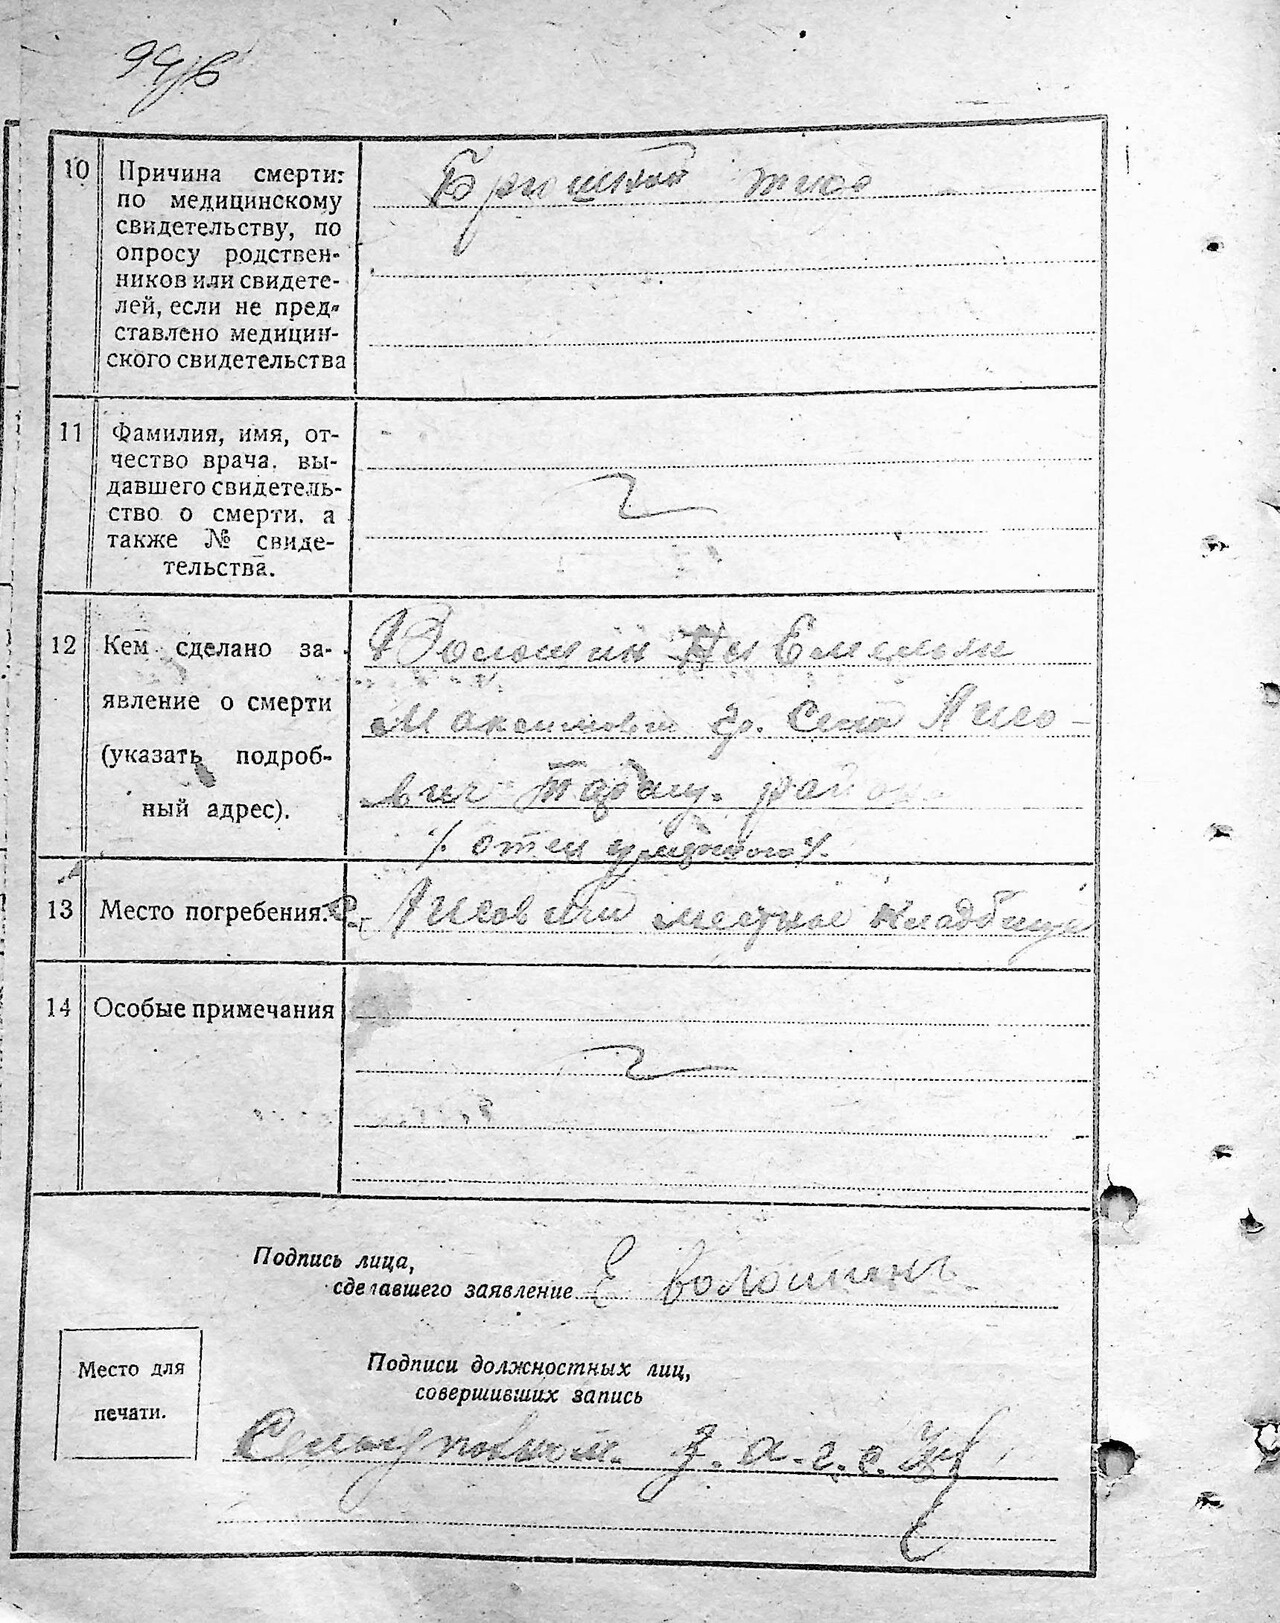 10 Причина смерти:
по медицинскому
свидетельству, по
опросу родствен-
ников или свидете-
лей, если не пред-
ставлено медицин-
ского свидетельства
Брюшной тиф
11 Фамилия, имя, от-
чество врача, вы-
давшего свидетель-
ство о смерти, а
также № свиде-
тельства.
12 Кем сделано за-
явление о смерти
(указать подроб-
ный адрес).
Волошин Емельян
Максимович гр. села
район
отец умершого
13 Место погребения.
местное кладбище
14 Особые примечания
Подпись лица,
сделавшего заявление Е Волошинъ
Подписи должностных лиц,
совершивших запись
Место для
печати.
З.а.г.с.